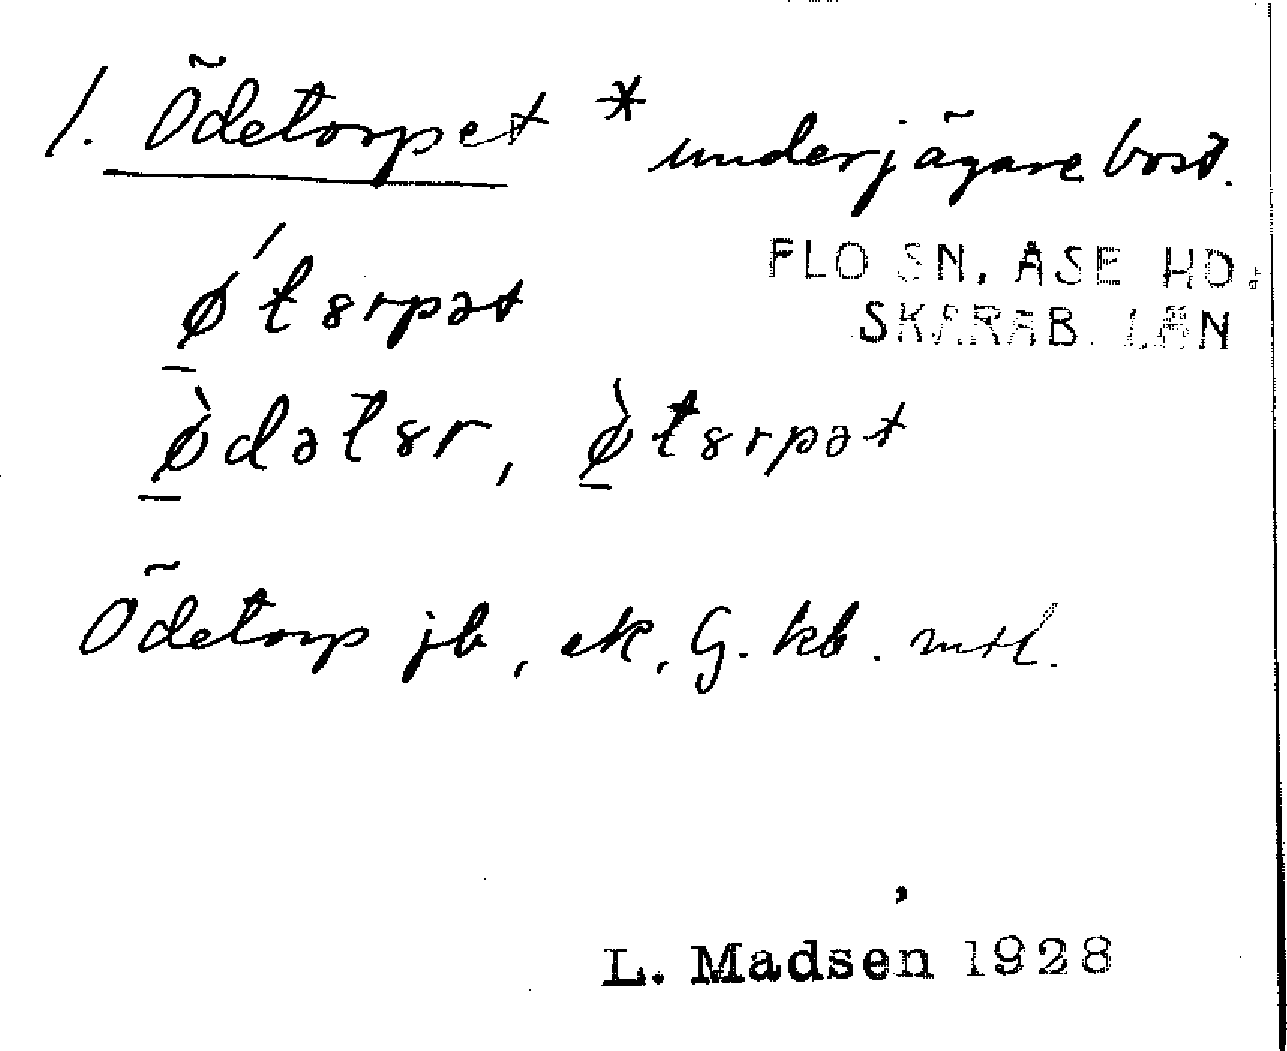 1. Ödetorpet * underjägarebost.
FLO SN, ÅSE HD.
SKARAB. LÄN
ǿtsrpət
ø̀dətsr, ø̀tsrpət
Ödetorp jb, ek, G. kb. mtl.
L. Madsen 1928